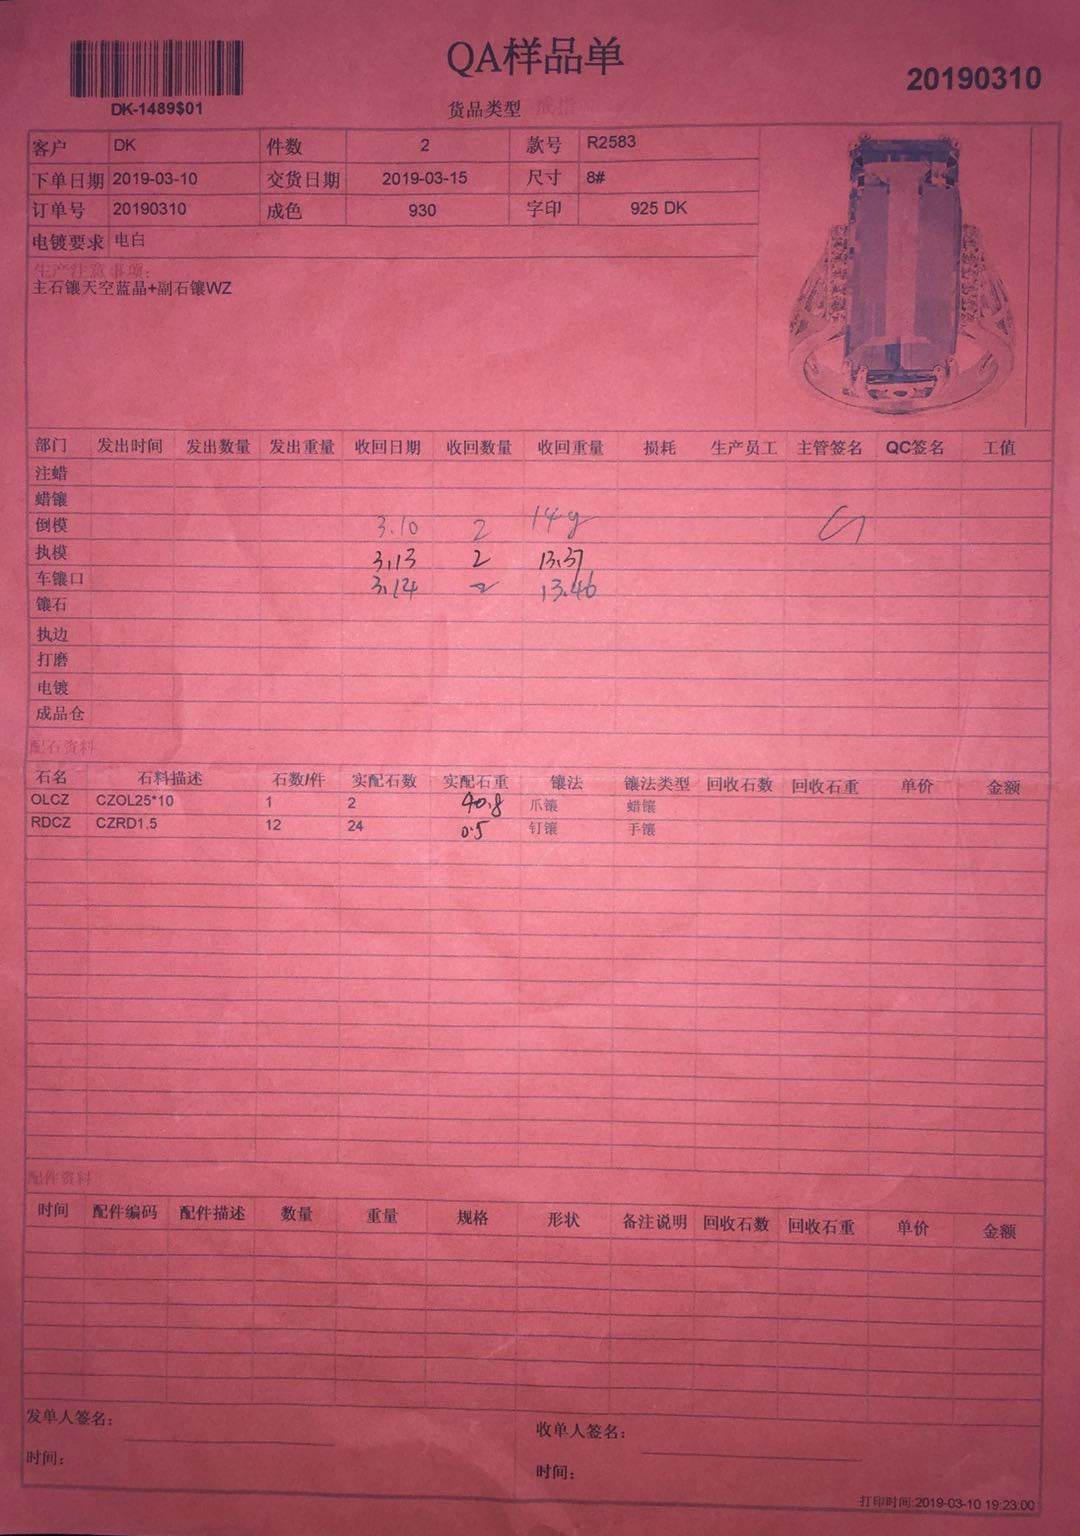 QA样品单
20190310
DK-1489$01
货品类型 戒指
客户 DK 件数 2 款号 R2583
下单日期 2019-03-10 交货日期 2019-03-15 尺寸 8#
订单号 20190310 成色 930 字印 925 DK
电镀要求 电白
生产注意事项:
主石镶天空蓝晶+副石镶WZ
部门 发出时间 发出数量 发出重量 收回日期 收回数量 收回重量 损耗 生产员工 主管签名 QC签名 工值
注蜡
蜡镶
倒模 3.10 2 14g
执模 3.13 2 13.37
车镶口 3.14 2 13.46
镶石
执边
打磨
电镀
成品仓
配石资料
石名 石料描述 石数/件 实配石数 实配石重 镶法 镶法类型 回收石数 回收石重 单价 金额
OLCZ CZOL25*10 1 2 40.8 爪镶 蜡镶
RDCZ CZRD1.5 12 24 0.5 钉镶 手镶
配件资料
时间 配件编码 配件描述 数量 重量 规格 形状 备注说明 回收石数 回收石重 单价 金额
发单人签名:
收单人签名:
时间:
时间:
打印时间:2019-03-10 19:23:00